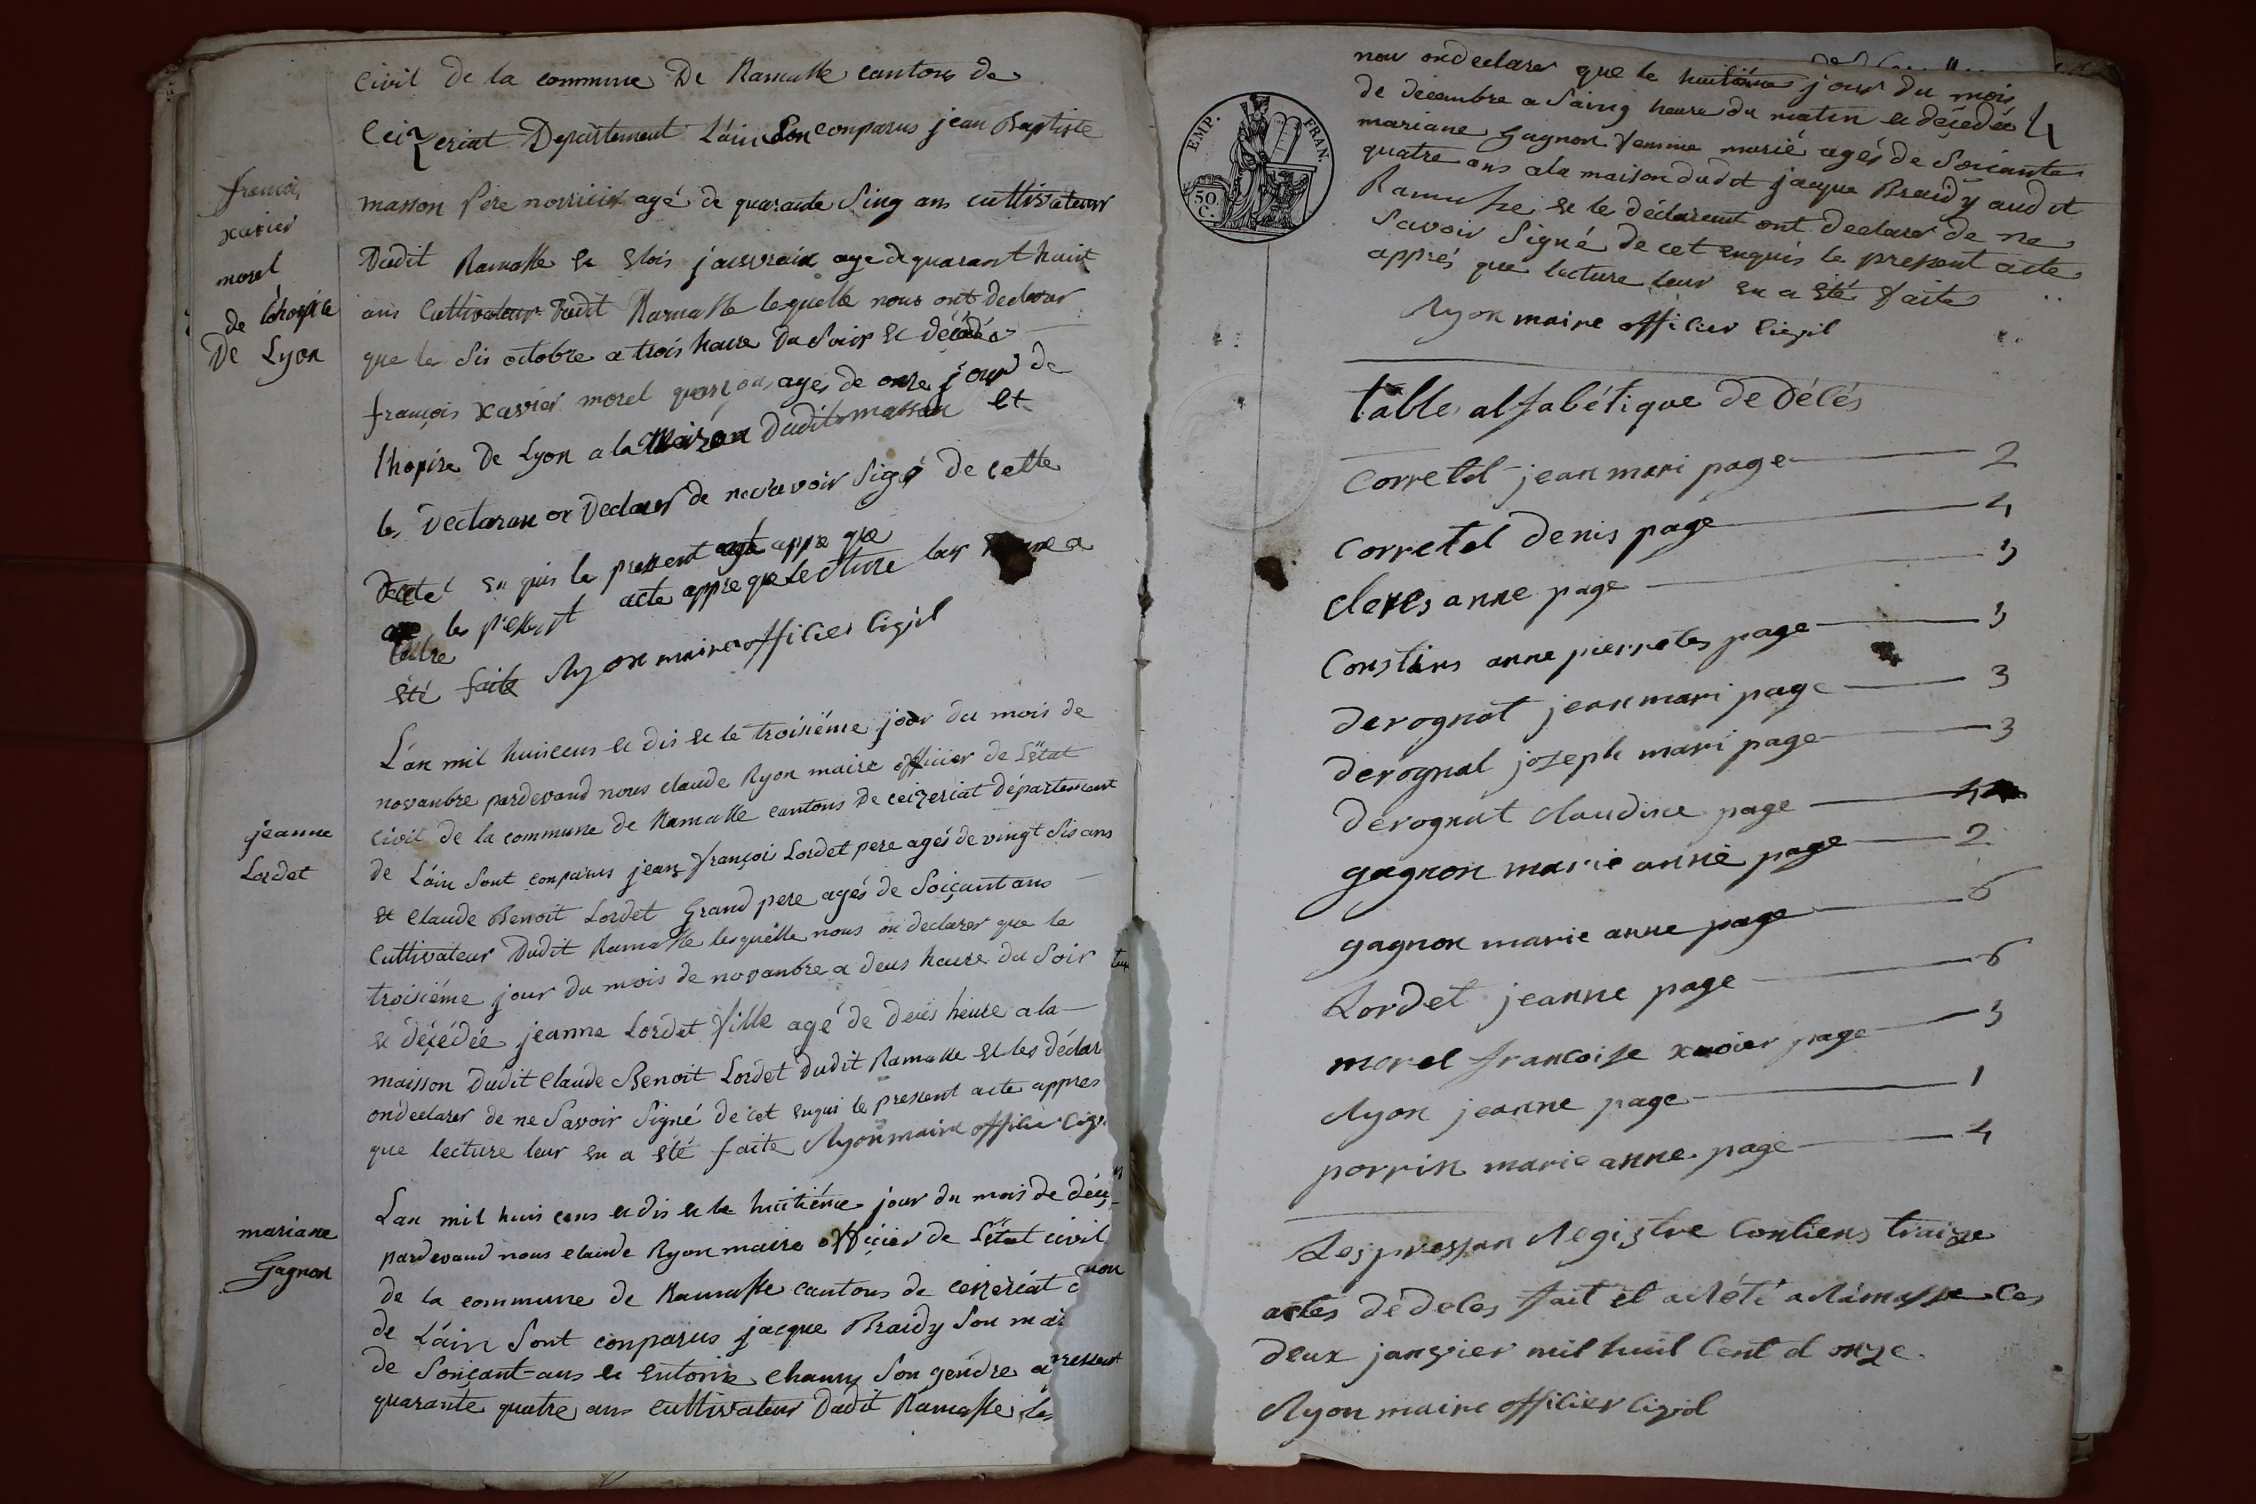 civil de la commune De Ramasse cantons de
Ceizeriat Departement L'ain Son conparus jean Baptiste
françois
xavier
morel
de lhopite
De Lyon
masson Pere norricier agé de quarante Sinq ans cultivateur
Dudit Ramasse et Elois age de quarant huit
ans Cultivateur Dudit Ramasse lequelle nous ont declarer
que le Sis octobre a trois heure Du Soir Et décédér
françois xavier morel garçon agés de onze jour de
lhopire De Lyon a la Maison Dudit masson Et
les Declaran on Declarer de ne savoir Signé de cette
Decete En quis le pressent acte appre que
le pressent acte appre que Lecture leur
été faite Ryon maire officier Civil
L'an mil huiscens et dis et le troisiéme jour du mois de
novanbre pardevand nous claude Ryon maire officier de L'état
jeanne
Lordet
Civil de la commune de Ramasse cantons De ceizeriat département
de L'ain Sont conparus jean françois Lordet pere agés de vingt Sis ans
et Claude Benoit Lordet Grand pere agés de Soiçant ans
Cultivateur Dudit Ramasse lesquelle nous on declarer que le
troisiéme jour du mois de novanbre a deus heure du Soir
et déçédée jeanne Lordet fille agé de deus heure a la
maisson Dudit Claude Benoit Lordet Dudit Ramasse et les déclar
on declarer de ne Savoir Signé de cet enqui le pressent acte appres
que lecture leur en a été faite Ryon maire officier Civi
mariane
Gagnon
Lan mil huis cens et dis et le huitiéme jour du mois de déce
pardevand nous claude Ryon maire officier de L'état civil
de la commune de Ramasse cantons de ceizeriat d
de L'ain Sont conparus jacque Braidy Son mar
de Soiçant ans et Entoine Chanuy Son gendre a
quarante quatre ans cultivateur Dudit Ramasse les
EMP. FRAN.
50 C.
nous on declarer que le huitiéme jour du mois
de décembre a Sainq heure du matin et déçedée
mariane Gagnon femme marié agés de Soiçante
quatre ans a la maison dudit jacque Braidy audit
Ramasse et le déclareent ont declarer de ne
Savoir Signé de cet enquis le pressent acte
apprés que lecture leur en a été faite
Ryon maire officier Civil
table alfabétique de décés
Corretel jean mari page 2
Corretel Denis page 4
Cleres anne page 3
Constans anne pierrete page 3
derognat jean mari page 3
derognat joseph mari page 3
dérognat Claudine page 4
gagnon marie anne page 2
gagnon marie anne page 6
Lordet jeanne page 6
morel francoise xavier page 5
Ryon jeanne page 1
porrin marie anne page 4
Les pressan Registre Contiens traize
actes de deces fait et arrété a Ramasse les
deux janvier mil huil Cent et onze.
Ryon maire officier Civil